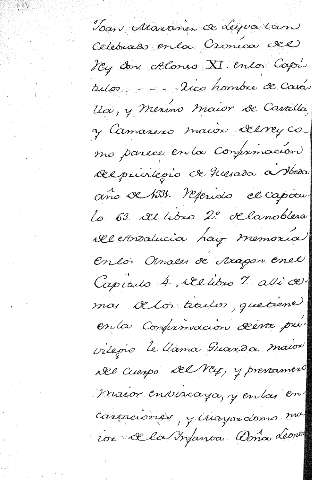 Joan Martinez de Leyva tan
celebrado en la Cronica del
Rey Don Alonso XI. en los Capi
tulos . . - - - Rico hombre de Casti
lla, y Merino Maior de Castilla,
y Camarero maior del rey co-
mo parece en la Confirmacion
del privilegio de Quesada à Ubeda
año de 1331. referido el capitu
lo 63. del libro 2º de la nobleza
del Andalucia hay memoria
en los Anales de Aragon en el
Capitulo 4. del libro 7. alli de
mas de los titulos, que tiene
en la Confirmacion de este pri
vilegio le llama Guarda maior
del cuerpo del Rey, y prestamero
Maior en Vizcaya, y en las en
cartaciones, y Mayordomo ma
ior de la Infanta Doña Leonor